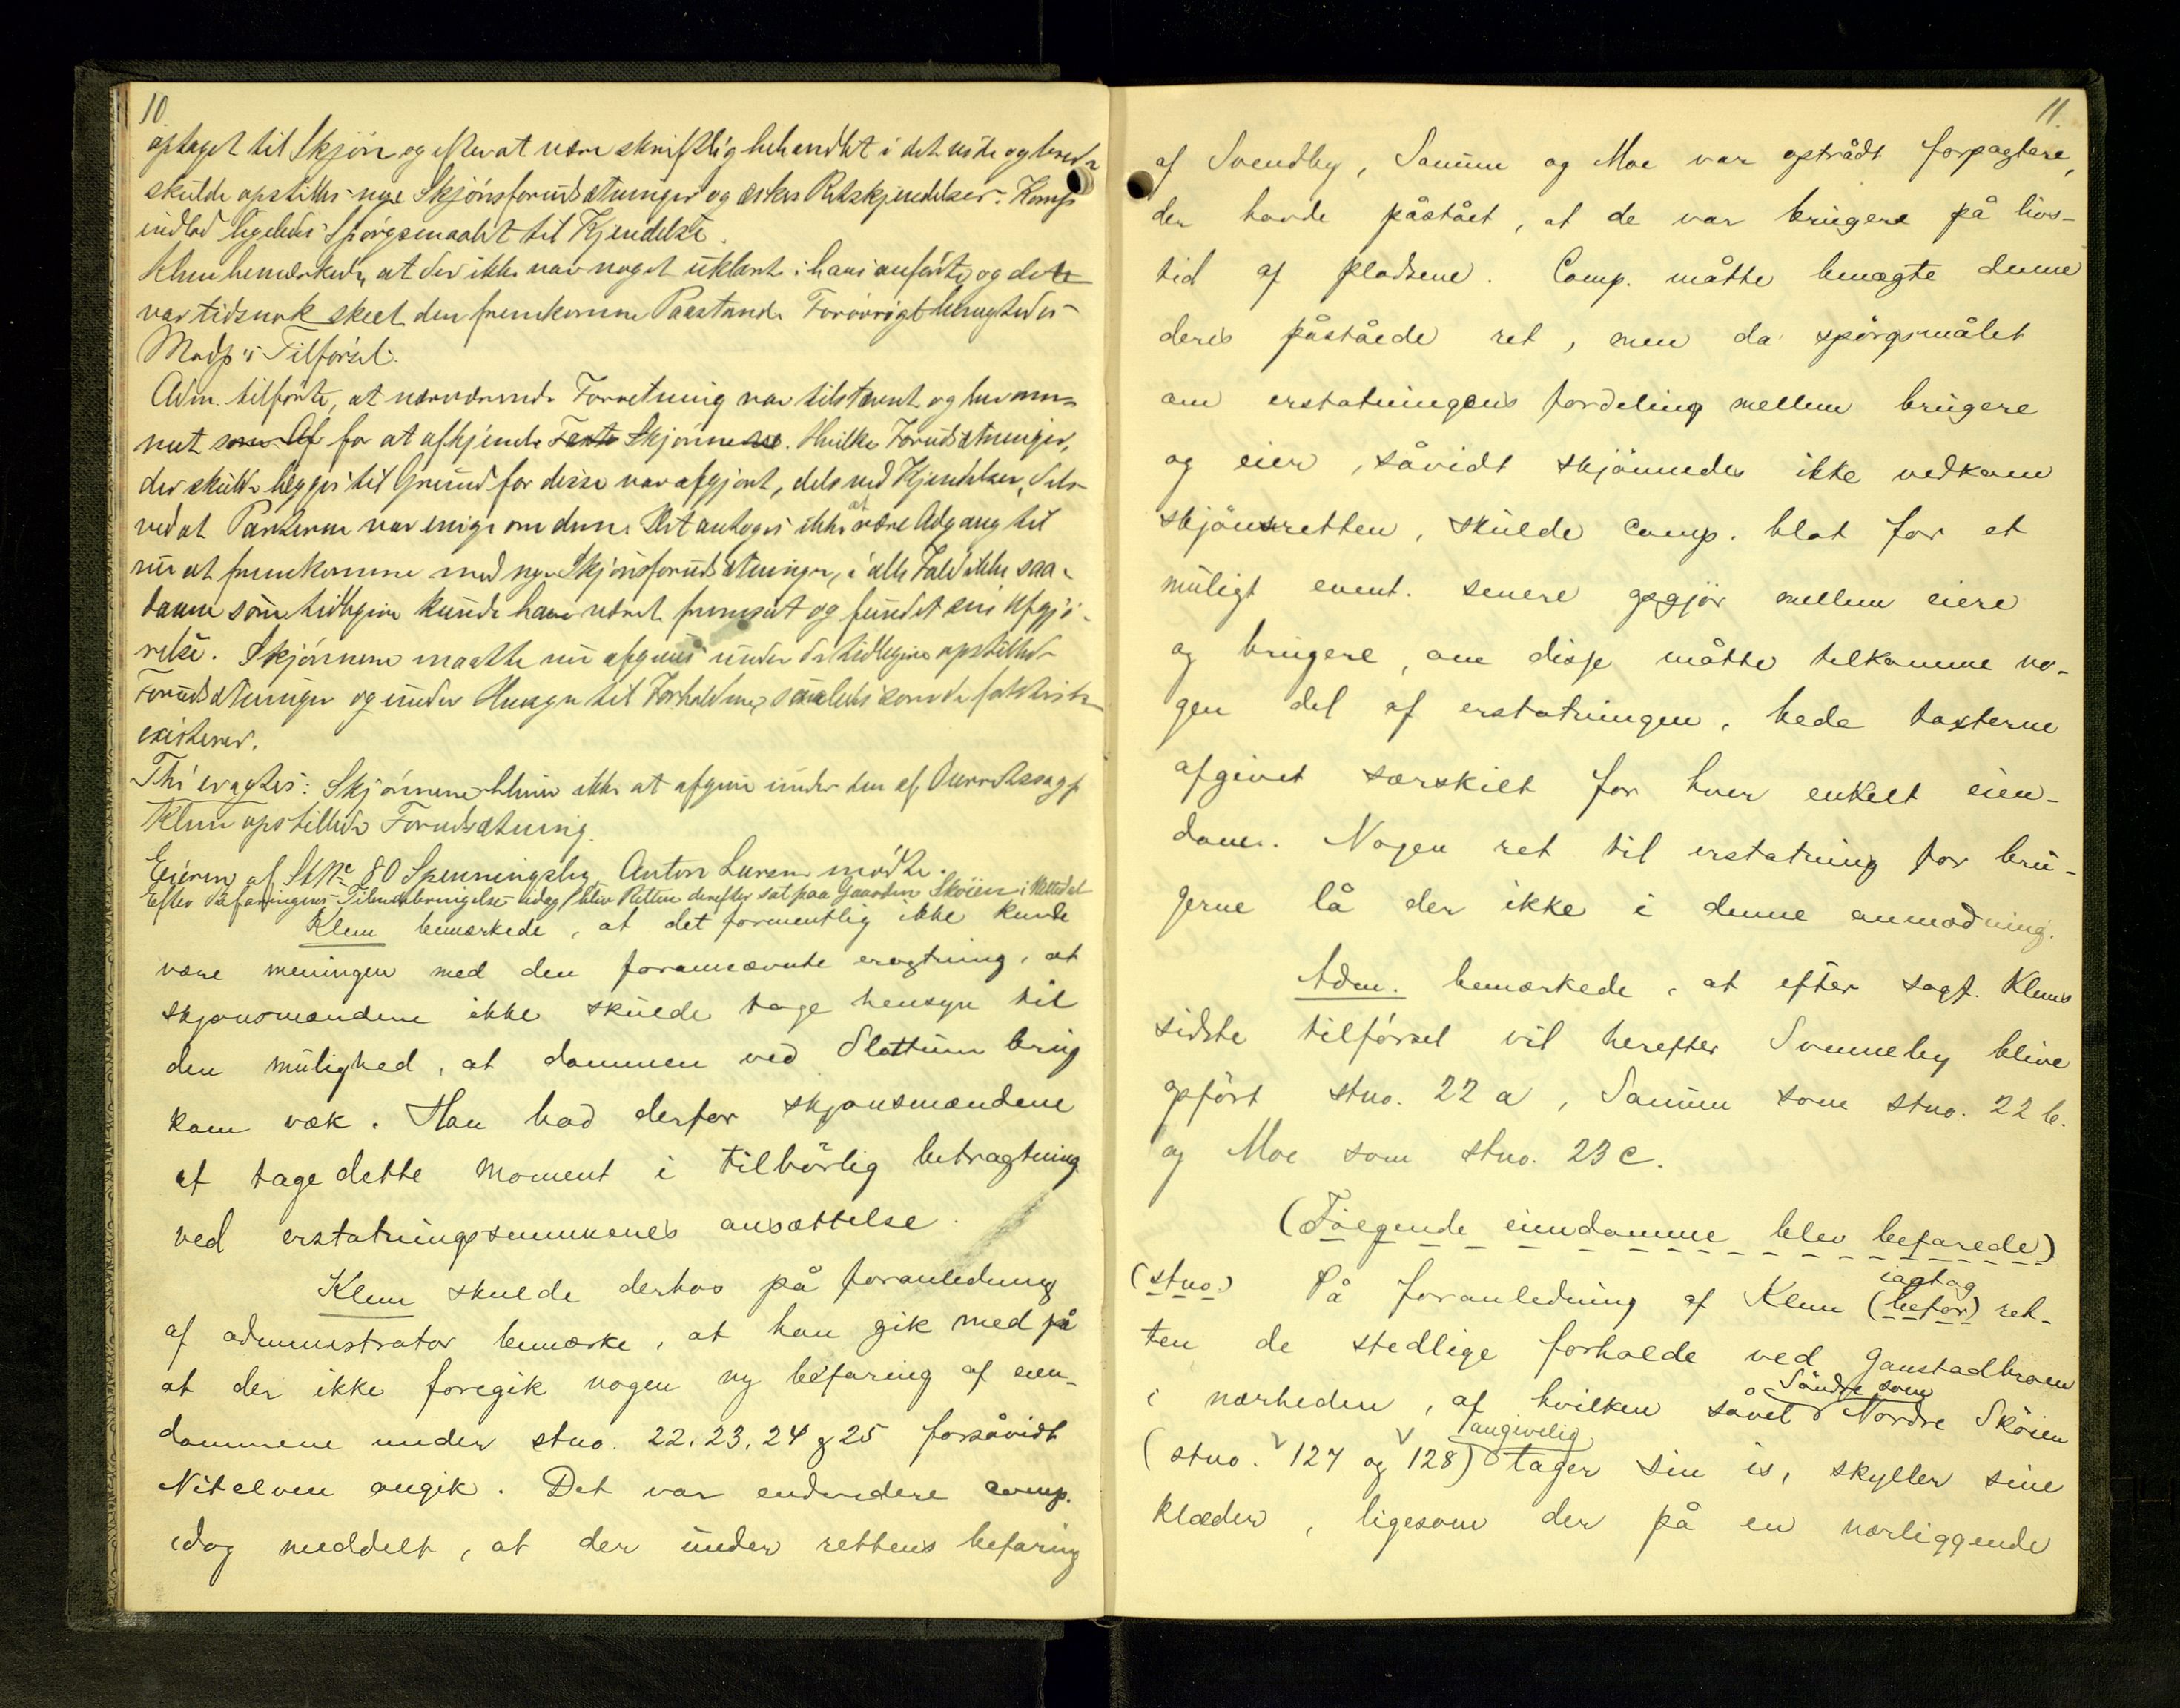 10.
optaget til Skjøn og efter at være skriftlig behandlet i det vide og brede
skulde opstilles nye Skjønsforudsætninger og æskes Retskjendelser. Komp
indlod ligeledes Spørgsmaalet til Kjendelse.
Klem bemærkede, at der ikke var noget uklart i hans anførte og dette
var tidsnok skeet den fremkomne Paastand. Forøvrigt benegtedes
Modp's Tilførsel.
Adm. tilførte, at nærværende Forretning var tilstævnt og berammet
som Af for at afhjemle Taxte Skjønnene. Hvilke Forudsætninger,
der skulde lægges til Grund for disse var afgjort, dels ved Kjendelser, dels
ved at Parterne var enige om dem. Det antoges ikke at være Adgang til
nu at fremkomme med nye Skjønsforudsætninger, i alle Fald ikke saa-
danne som tidligere kunde have været fremsat og fundet sin Afgjø-
relse. Skjønnene maatte nu afgives under de tidligere opstillede
Forudsætninger og under Hensyn til Forholdene, saaledes som de faktisk
existerer.
Thi eragtes: Skjønnene bliver ikke at afgive under den af Overretssagf
Klem opstillede Forudsætning.
Eieren af St No 80 Spenningsby Anton Larsen mødte.
Efter Befaringens Tilendebringelse idag blev Retten derefter sat paa Gaarden Skøien i Nittedal
Klem bemærkede, at det formentlig ikke kunde
være meningen med den forannævnte eragtning, at
skjønsmændene ikke skulde tage hensyn til
den mulighed, at dammen ved Slattum brug
kom væk. Han bad derfor skjønsmændene
at tage dette moment i tilbørlig betragtning
ved erstatningssummenes ansættelse.
Klem skulde derhos på foranledning
af administrator bemærke, at han gik med på
at der ikke foregik nogen ny befaring af eien-
dommene under stno. 22, 23, 24 og 25 forsåvidt
Nitelven angik. Det var endvidere comp.
idag meddelt, at der under rettens befaring
11.
af Svendby, Sanum og Moe var optrådt forpagtere,
der havde påstået, at de var brugere på livs-
tid af pladsene. Comp. måtte benægte denne
deres påståede ret, men da spørgsmålet
om erstatningens fordeling mellem brugere
og eier, såvidt skjønnedes ikke vedkom
skjønsretten, skulde comp. blot for et
muligt event. senere opgjør mellem eiere
og brugere, om disse måtte tilkomme no-
gen del af erstatningen, bede taxterne
afgivet særskilt for hver enkelt eien-
dom. Nogen ret til erstatning for bru-
gerne lå der ikke i denne anmodning.
Adm. bemærkede, at efter sagf. Klems
sidste tilførsel vil herefter Svenneby blive
opført stno. 22 a, Sanum som stno. 22 b.
og Moe som stno. 23 c.
(Følgende eiendomme blev befarede)
(stno.) På foranledning af Klem (befor) iagtog ret-
ten de stedlige forholde ved Ganstadbroen
i nærheden, af hvilken såvel Søndre som Nordre Skøien
(stno. 127 og 128) angivelig tager sin is, skyller sine
klæder, ligesom der på en nærliggende